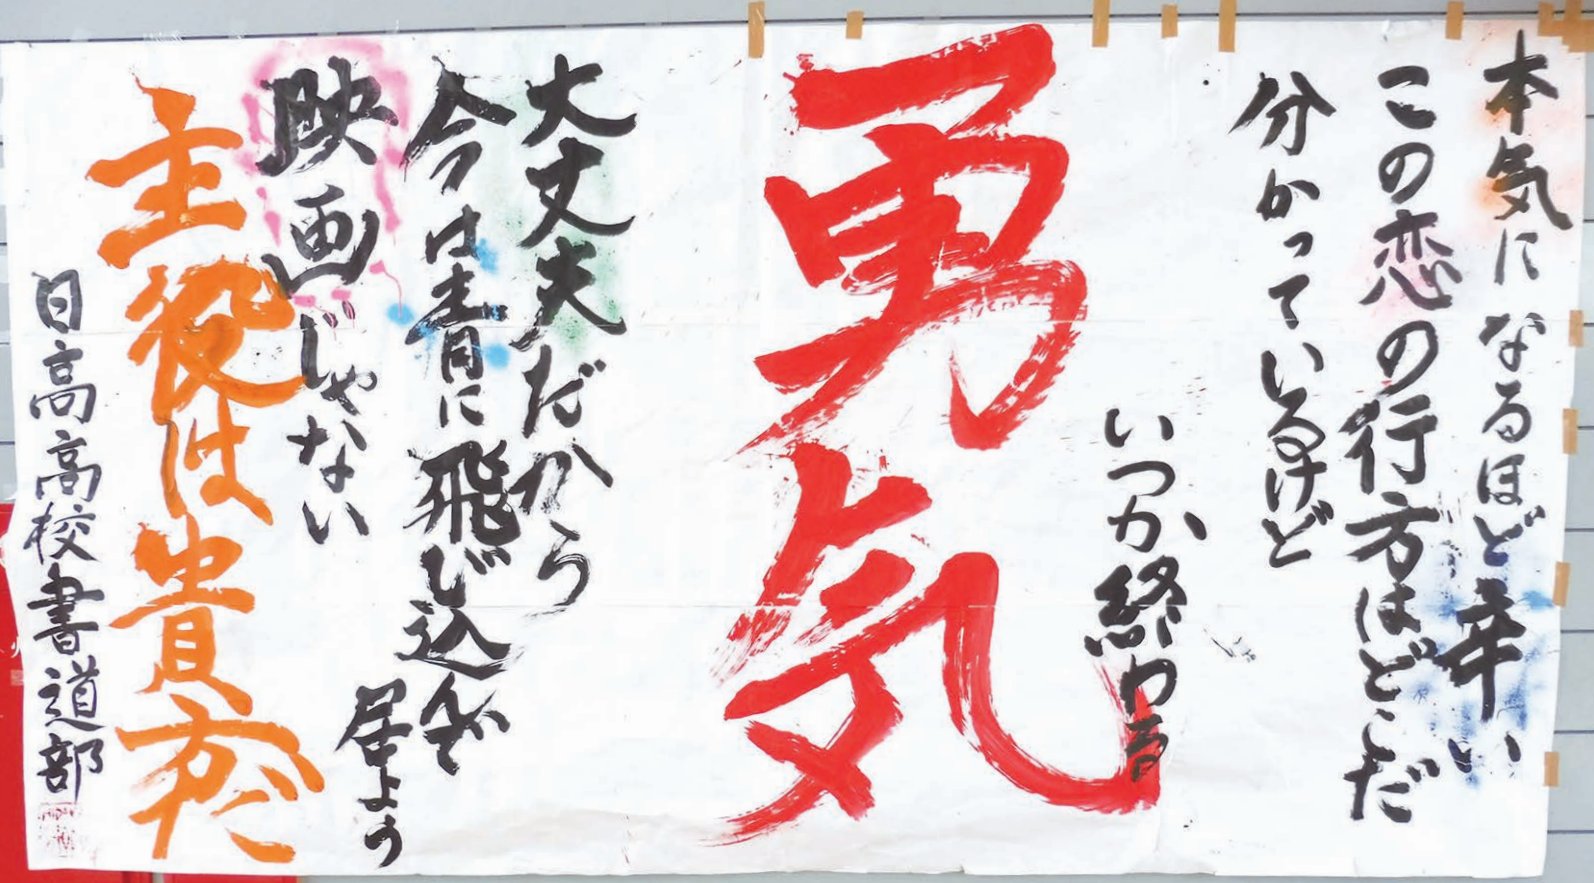 本気になるほど辛い
この恋の行方はどこだ
分かっているけど
いつか終わる
勇気
大丈夫だから
今は青に飛び込んで
居よう
映画じゃない
主役は貴方だ
日高高校書道部